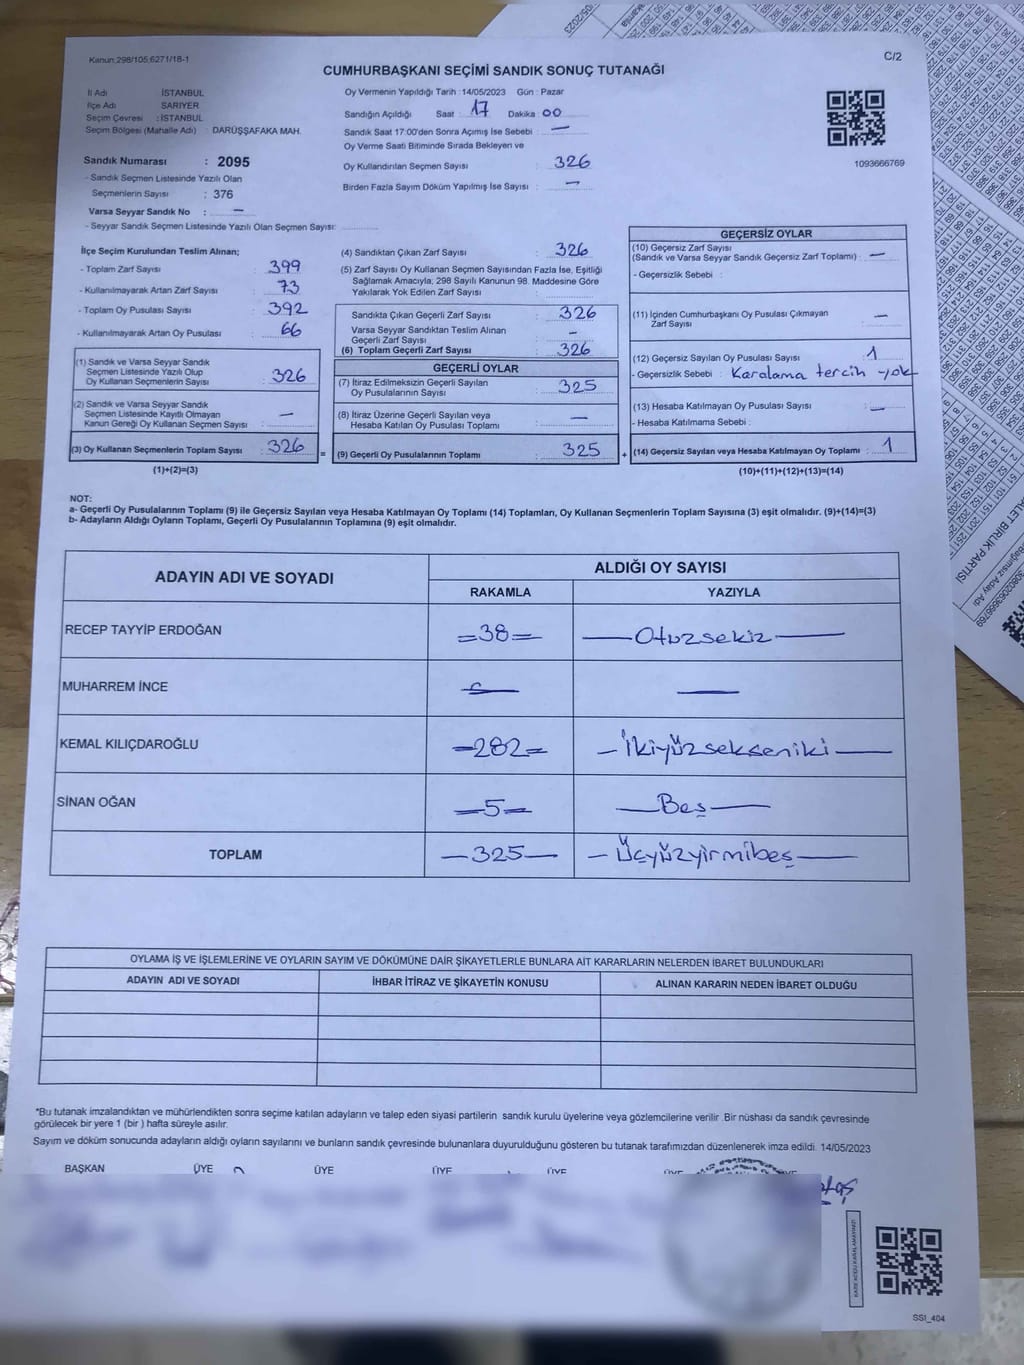 Kanun:298/105,6271/18-1
C/2
CUMHURBAŞKANI SEÇİMİ SANDIK SONUÇ TUTANAĞI
İl Adı İSTANBUL
İlçe Adı SARIYER
Seçim Çevresi : İSTANBUL
Seçim Bölgesi (Mahalle Adı) : DARÜŞŞAFAKA MAH.
Oy Vermenin Yapıldığı Tarih : 14/05/2023 Gün : Pazar
Sandığın Açıldığı Saat : 17 Dakika : 00
Sandık Saat 17:00'den Sonra Açımış İse Sebebi : —
Oy Verme Saati Bitiminde Sırada Bekleyen ve
Oy Kullandırılan Seçmen Sayısı : 326
Birden Fazla Sayım Döküm Yapılmış İse Sayısı : —
1093666769
Sandık Numarası : 2095
- Sandık Seçmen Listesinde Yazılı Olan
Seçmenlerin Sayısı : 376
Varsa Seyyar Sandık No : —
- Seyyar Sandık Seçmen Listesinde Yazılı Olan Seçmen Sayısı:
İlçe Seçim Kurulundan Teslim Alınan;
- Toplam Zarf Sayısı : 399
- Kullanılmayarak Artan Zarf Sayısı : 73
- Toplam Oy Pusulası Sayısı : 392
- Kullanılmayarak Artan Oy Pusulası : 66
(1) Sandık ve Varsa Seyyar Sandık
Seçmen Listesinde Yazılı Olup
Oy Kullanan Seçmenlerin Sayısı : 326
(2) Sandık ve Varsa Seyyar Sandık
Seçmen Listesinde Kayıtlı Olmayan
Kanun Gereği Oy Kullanan Seçmen Sayısı : —
(3) Oy Kullanan Seçmenlerin Toplam Sayısı : 326
(1)+(2)=(3)
(4) Sandıktan Çıkan Zarf Sayısı : 326
(5) Zarf Sayısı Oy Kullanan Seçmen Sayısından Fazla İse, Eşitliği
Sağlamak Amacıyla; 298 Sayılı Kanunun 98. Maddesine Göre
Yakılarak Yok Edilen Zarf Sayısı :
Sandıkta Çıkan Geçerli Zarf Sayısı : 326
Varsa Seyyar Sandıktan Teslim Alınan
Geçerli Zarf Sayısı : —
(6) Toplam Geçerli Zarf Sayısı : 326
GEÇERLİ OYLAR
(7) İtiraz Edilmeksizin Geçerli Sayılan
Oy Pusulasının Sayısı : 325
(8) İtiraz Üzerine Geçerli Sayılan veya
Hesaba Katılan Oy Pusulası Toplamı : —
= (9) Geçerli Oy Pusulalarının Toplamı : 325
GEÇERSİZ OYLAR
(10) Geçersiz Zarf Sayısı
(Sandık ve Varsa Seyyar Sandık Geçersiz Zarf Toplamı) : —
- Geçersizlik Sebebi :
(11) İçinden Cumhurbaşkanı Oy Pusulası Çıkmayan
Zarf Sayısı : —
(12) Geçersiz Sayılan Oy Pusulası Sayısı : 1
- Geçersizlik Sebebi : Karalama tercih yok
(13) Hesaba Katılmayan Oy Pusulası Sayısı : —
- Hesaba Katılmama Sebebi :
+ (14) Geçersiz Sayılan veya Hesaba Katılmayan Oy Toplamı : 1
(10)+(11)+(12)+(13)=(14)
NOT:
a- Geçerli Oy Pusulalarının Toplamı (9) ile Geçersiz Sayılan veya Hesaba Katılmayan Oy Toplamı (14) Toplamları, Oy Kullanan Seçmenlerin Toplam Sayısına (3) eşit olmalıdır. (9)+(14)=(3)
b- Adayların Aldığı Oyların Toplamı, Geçerli Oy Pusulalarının Toplamına (9) eşit olmalıdır.
ADAYIN ADI VE SOYADI ALDIĞI OY SAYISI
RAKAMLA YAZIYLA
RECEP TAYYİP ERDOĞAN =38= —Otuzsekiz—
MUHARREM İNCE — —
KEMAL KILIÇDAROĞLU =282= —İkiyüzsekseniki—
SİNAN OĞAN =5= —Beş—
TOPLAM —325— —Üçyüzyirmibeş—
OYLAMA İŞ VE İŞLEMLERİNE VE OYLARIN SAYIM VE DÖKÜMÜNE DAİR ŞİKAYETLERLE BUNLARA AİT KARARLARIN NELERDEN İBARET BULUNDUKLARI
ADAYIN ADI VE SOYADI İHBAR İTİRAZ VE ŞİKAYETİN KONUSU ALINAN KARARIN NEDEN İBARET OLDUĞU
*Bu tutanak imzalandıktan ve mühürlendikten sonra seçime katılan adayların ve talep eden siyasi partilerin sandık kurulu üyelerine veya gözlemcilerine verilir .Bir nüshası da sandık çevresinde
görülecek bir yere 1 (bir ) hafta süreyle asılır.
Sayım ve döküm sonucunda adayların aldığı oyların sayılarını ve bunların sandık çevresinde bulunanlara duyurulduğunu gösteren bu tutanak tarafımızdan düzenlenerek imza edildi. 14/05/2023
BAŞKAN ÜYE ÜYE ÜYE ÜYE ÜYE
SSI_404